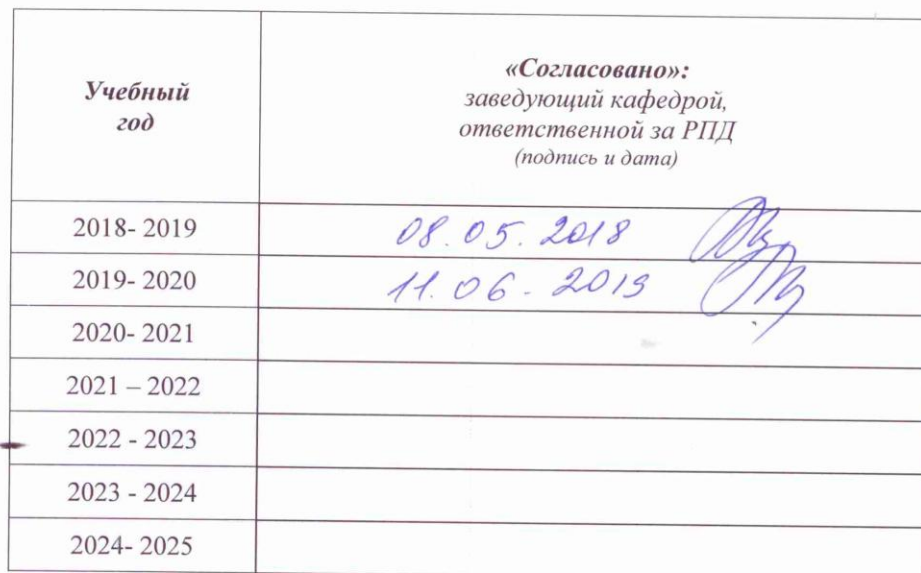 Учебный
год
«Согласовано»:
заведующий кафедрой,
ответственной за РПД
(подпись и дата)
2018- 2019 08.05.2018
2019- 2020 11.06.2019
2020- 2021
2021 – 2022
2022 - 2023
2023 - 2024
2024- 2025